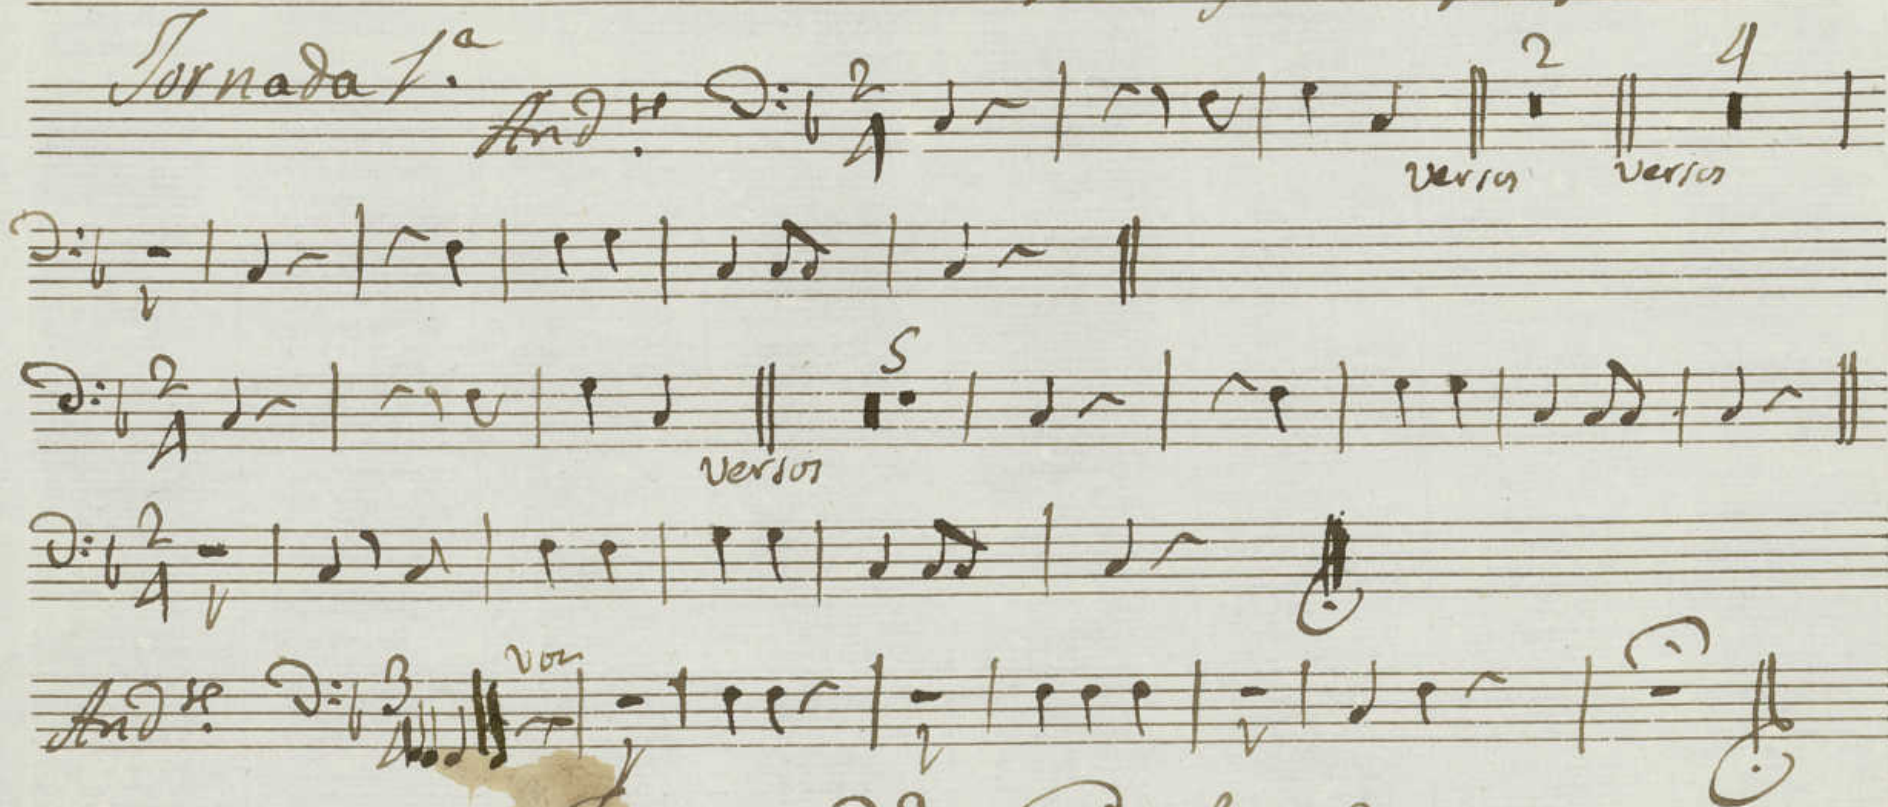 Jornada 1.ª
And.te 2/4 2 4
versos versos
V
2/4 5
versos
2/4
V
And.te 3/4 voz
V V V